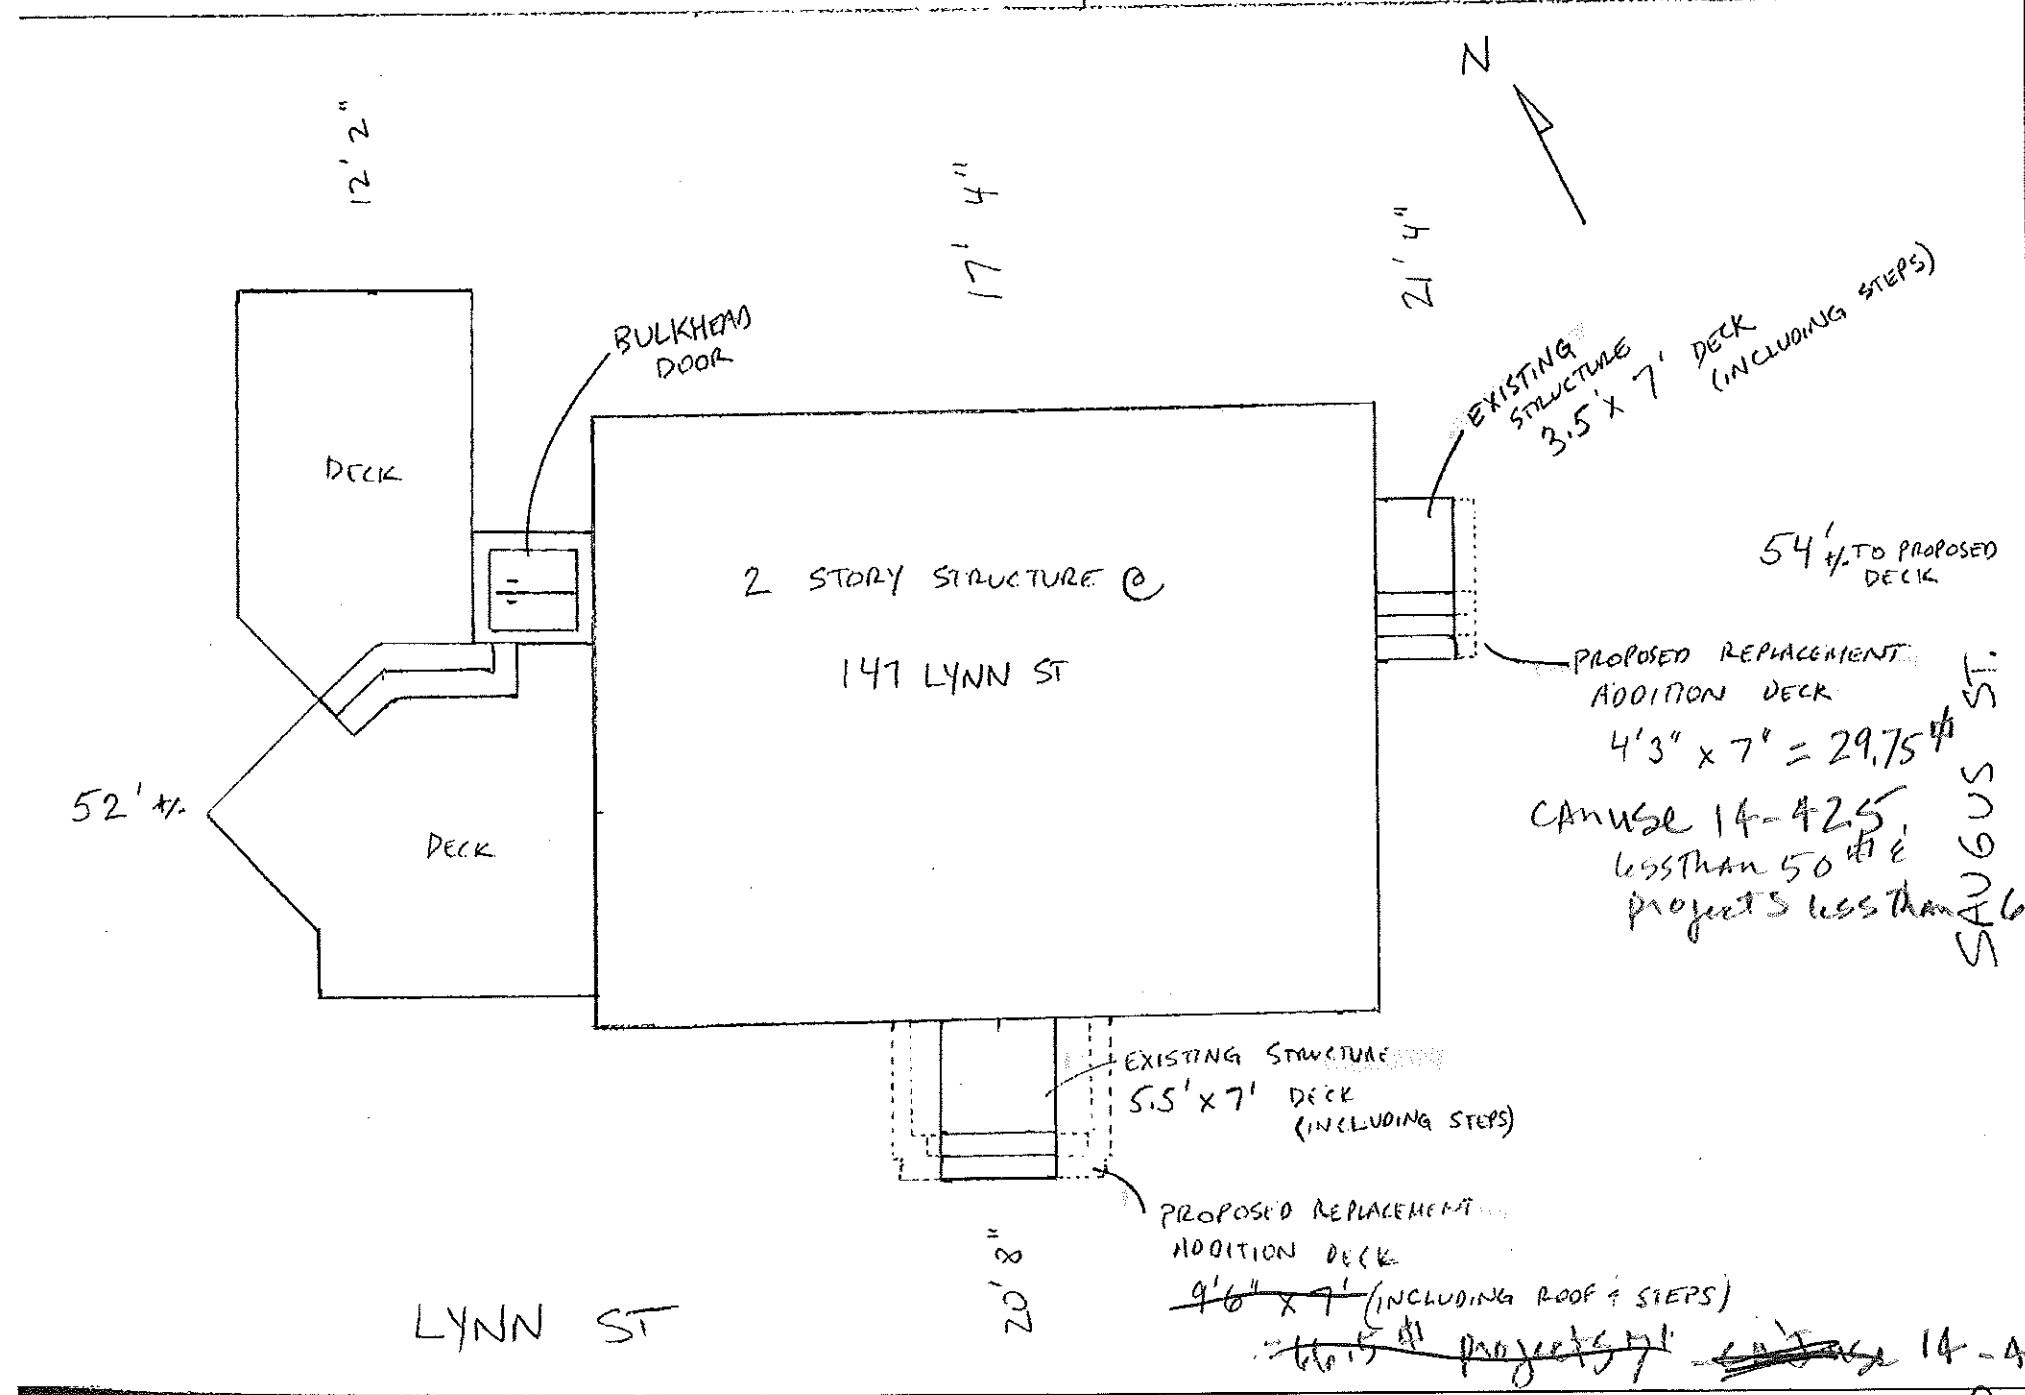 N
12' 2"
17' 4"
21' 4"
BULKHEAD
DOOR
EXISTING
STRUCTURE
3.5' x 7' DECK
(INCLUDING STEPS)
DECK
2 STORY STRUCTURE @
147 LYNN ST
54' +/- TO PROPOSED
DECK
PROPOSED REPLACEMENT
ADDITION DECK
4'3" x 7' = 29.75
CAN USE 14-425
less than 50
projects less than 6
SAUGUS ST.
52' +/-
DECK
EXISTING STRUCTURE
5.5' x 7' DECK
(INCLUDING STEPS)
PROPOSED REPLACEMENT
ADDITION DECK
9'6" x 7' (INCLUDING ROOF & STEPS)
= 66.5 projects 7' 14-4
20' 8"
LYNN ST